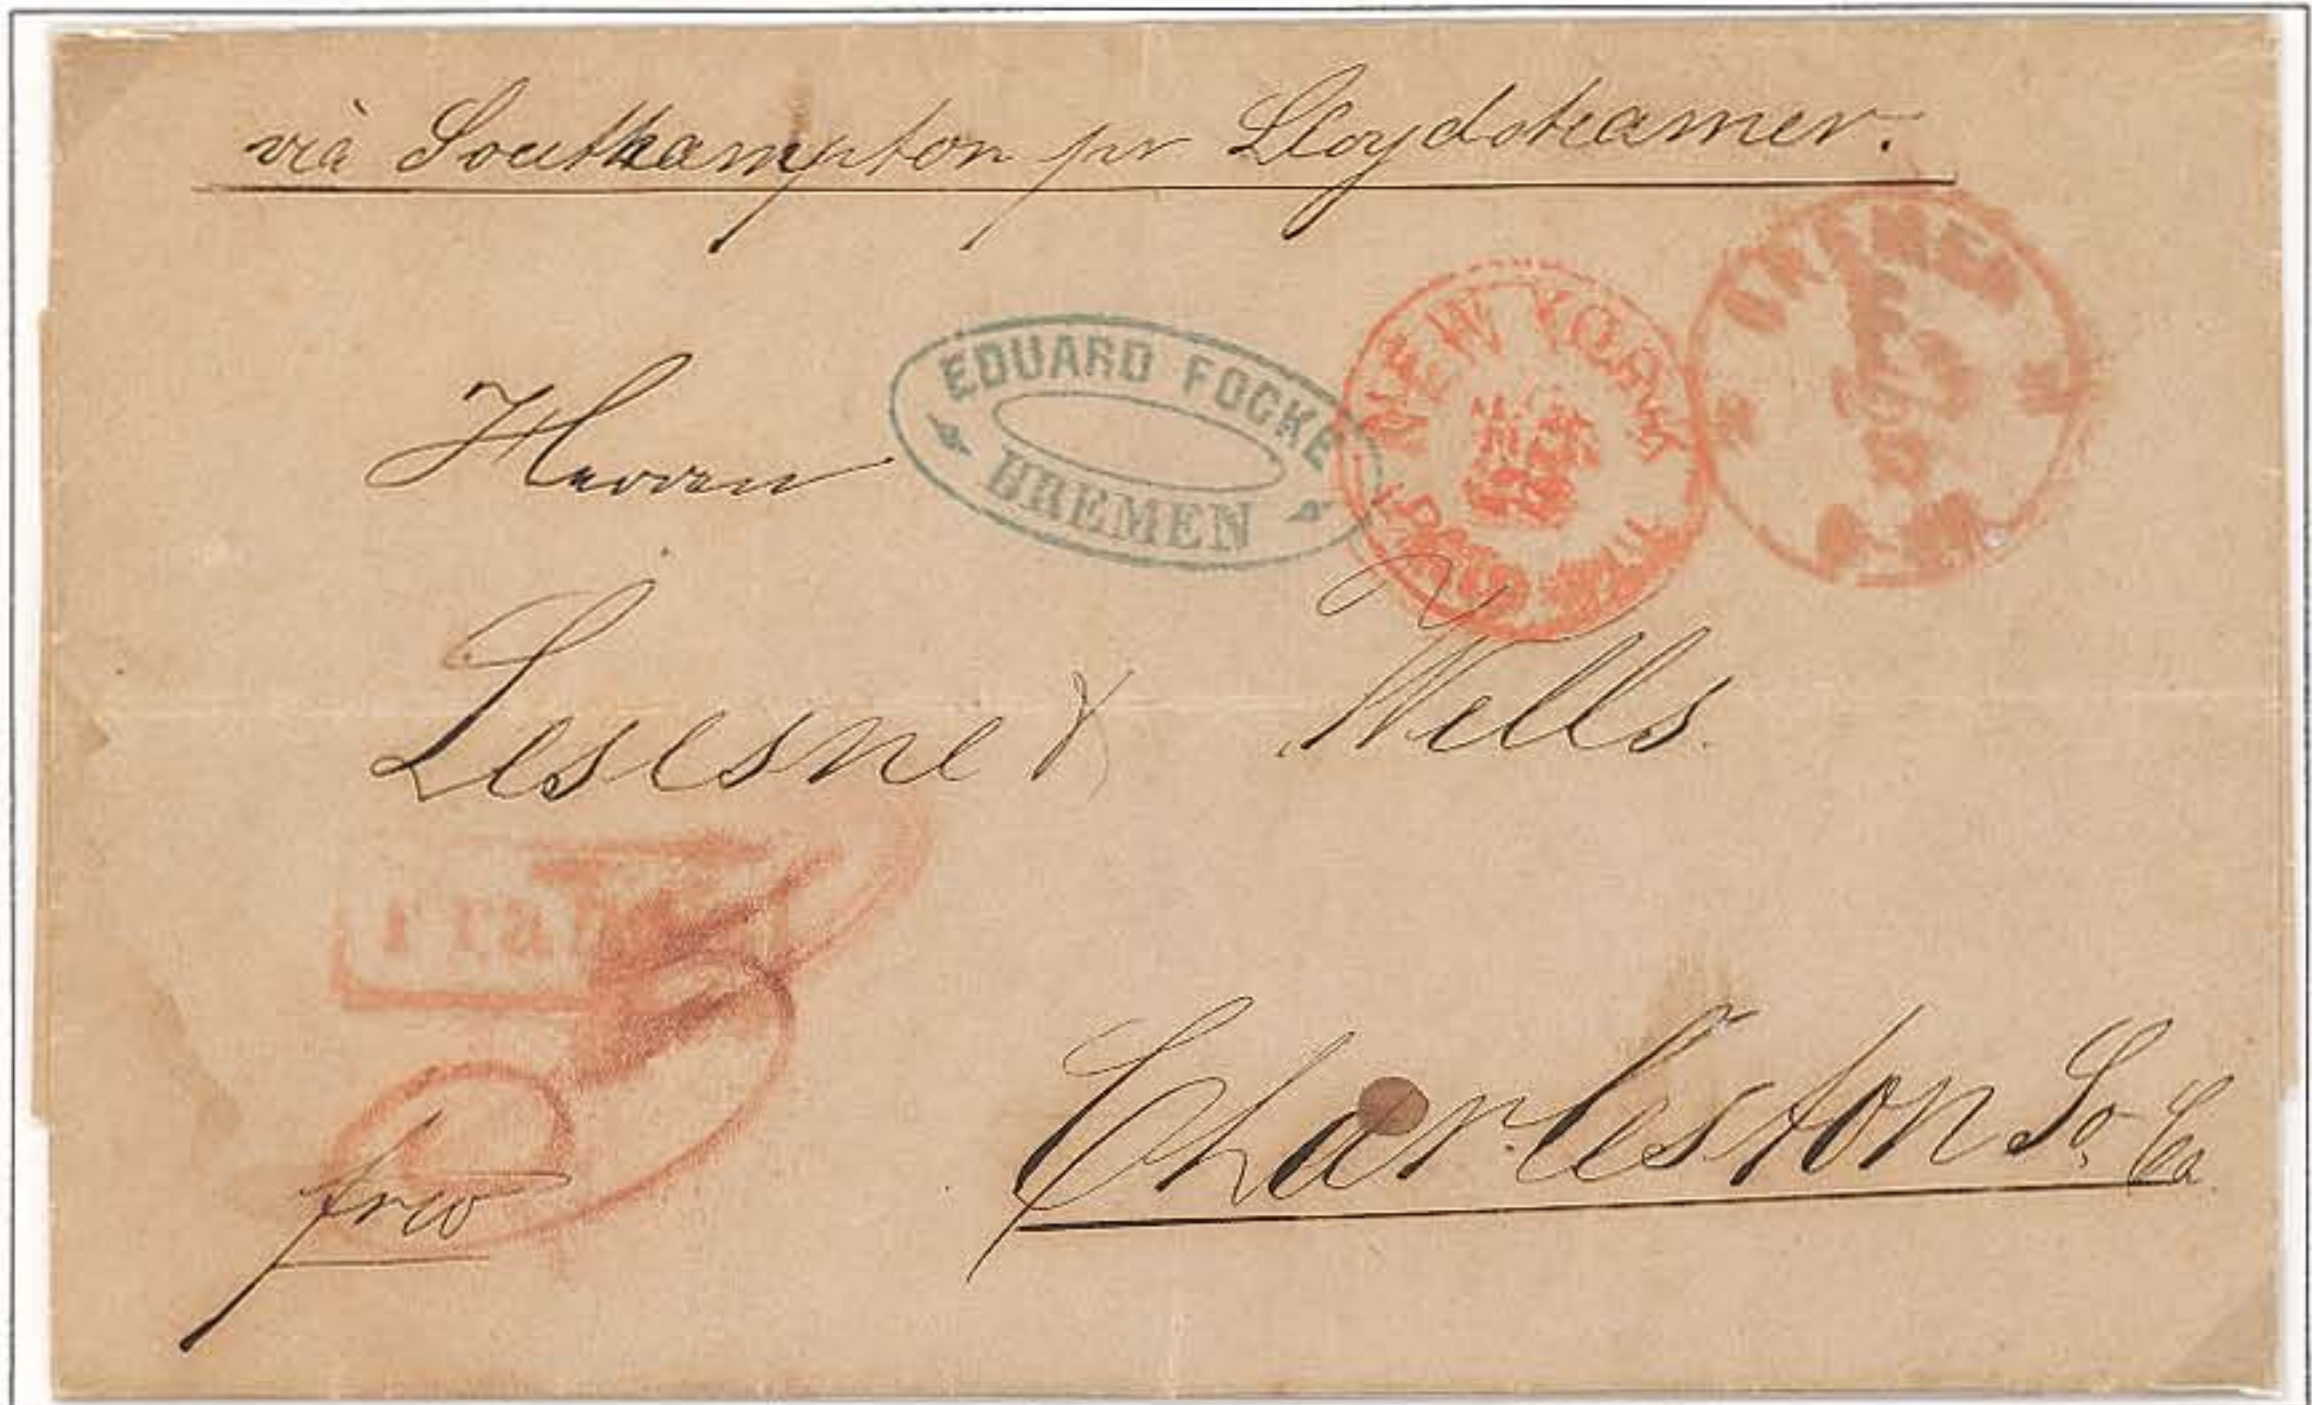 vià Southampton pr Lloydsteamer.
EDUARD FOCKE
BREMEN
NEW YORK
PAID ALL
BREMEN
Herren
Lesesne & Wells.
frco
Charleston So. Ca